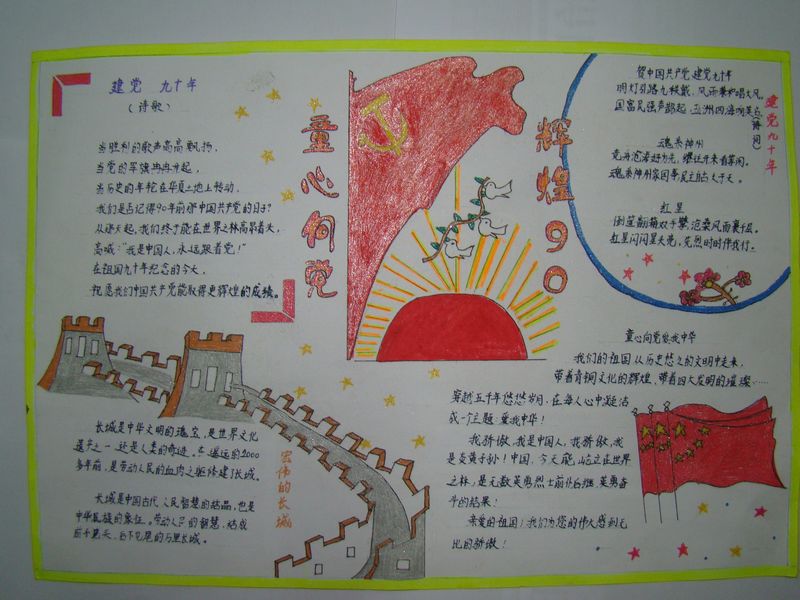 建党 九十年
(诗歌)
当胜利的歌声高高飘扬，
当党的军旗冉冉升起，
当历史的车轮在华夏土地上转动，
我们是否记得90年前你中国共产党的日子？
从那天起，我们终于能在世界之林高昂着天，
高喊："我是中国人，永远跟着党！"
在祖国九十年纪念的今天，
祝愿我们中国共产党能取得更辉煌的成绩。
童心向党
辉煌90
贺中国共产党建党九十年
明灯引路九秩载，风雨兼程唱大风
国富民强声韵起，五洲四海
建党九十年
魂系神州
魂系神州家国事民主
红星
红星闪闪
长城是中华文明的瑰宝，是世界文化
遗产之一，还是人类的奇迹。在遥远的2000
多年前，是劳动人民的血肉之躯修建了长城。
长城是中国古代人民智慧的结晶，也是
中华民族的象征。劳动人民的智慧，结成
前不见头，后不见尾的万里长城。
宏伟的长城
童心向党爱我中华
我们的祖国从历史悠久的文明中走来，
带着青铜文化的辉煌，带着四大发明的璀璨……
穿越五千年悠悠岁月，在每人心中凝结
成一个主题：爱我中华！
我骄傲，我是中国人，我骄傲，我
是炎黄子孙！中国，今天能屹立在世界
之林，是无数英勇烈士前仆后继，英勇奋
斗的结果！
亲爱的祖国！我们为您的伟大感到无
比的骄傲！